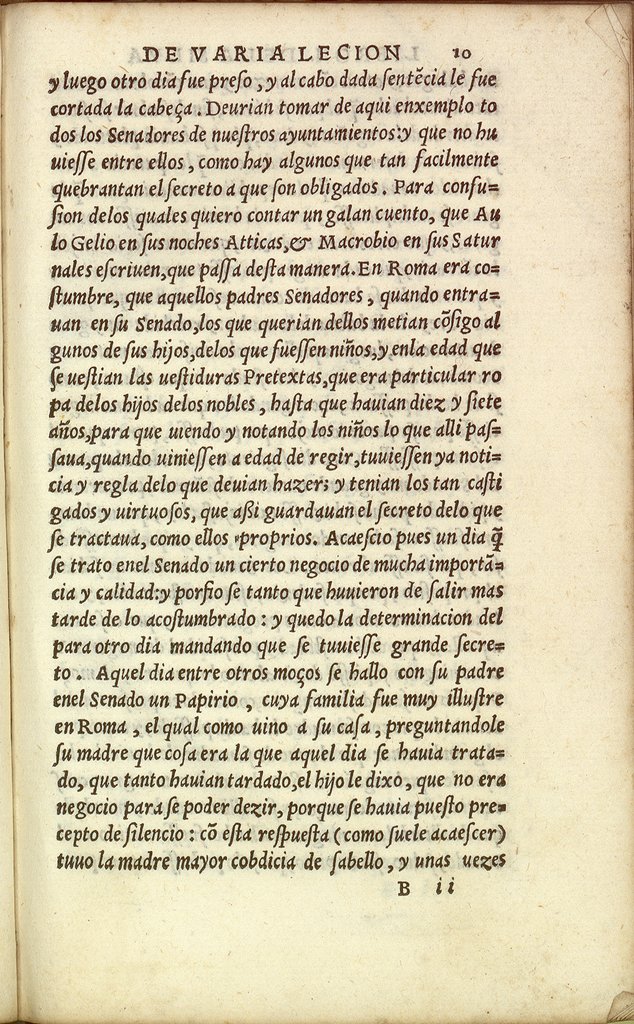 DE VARIA LECION 10
y luego otro dia fue preſo, y al cabo dada ſentẽcia le fue
cortada la cabeça. Deurian tomar de aqui enxemplo to
dos los Senadores de nueſtros ayuntamientos: y que no hu
uieſſe entre ellos, como hay algunos que tan facilmente
quebrantan el ſecreto a que ſon obligados. Para confu=
ſion delos quales quiero contar un galan cuento, que Au
lo Gelio en ſus noches Atticas,& Macrobio en ſus Satur
nales eſcriuen, que paſſa deſta manera. En Roma era co=
ſtumbre, que aquellos padres Senadores, quando entra=
uan en ſu Senado, los que querian dellos metian cõſigo al
gunos de ſus hijos, delos que fueſſen niños, y enla edad que
ſe ueſtian las ueſtiduras Pretextas, que era particular ro
pa delos hijos delos nobles, haſta que hauian diez y ſiete
años, para que uiendo y notando los niños lo que alli paſ=
ſaua, quando uinieſſen a edad de regir, tuuieſſen ya noti=
cia y regla delo que deuian hazer; y tenian los tan caſti
gados y uirtuoſos, que aßi guardauan el ſecreto delo que
ſe tractaua, como ellos proprios. Acaeſcio pues un dia q̃
ſe trato enel Senado un cierto negocio de mucha importã=
cia y calidad: y porfio ſe tanto que huuieron de ſalir mas
tarde de lo acoſtumbrado: y quedo la determinacion del
para otro dia mandando que ſe tuuieſſe grande ſecre=
to. Aquel dia entre otros moços ſe hallo con ſu padre
enel Senado un Papirio, cuya familia fue muy illuſtre
en Roma, el qual como uino a ſu caſa, preguntandole
ſu madre que coſa era la que aquel dia ſe hauia trata=
do, que tanto hauian tardado, el hijo le dixo, que no era
negocio para ſe poder dezir, porque ſe hauia pueſto pre=
cepto de ſilencio: cõ eſta reſpueſta (como ſuele acaeſcer)
tuuo la madre mayor cobdicia de ſabello, y unas uezes
B ii